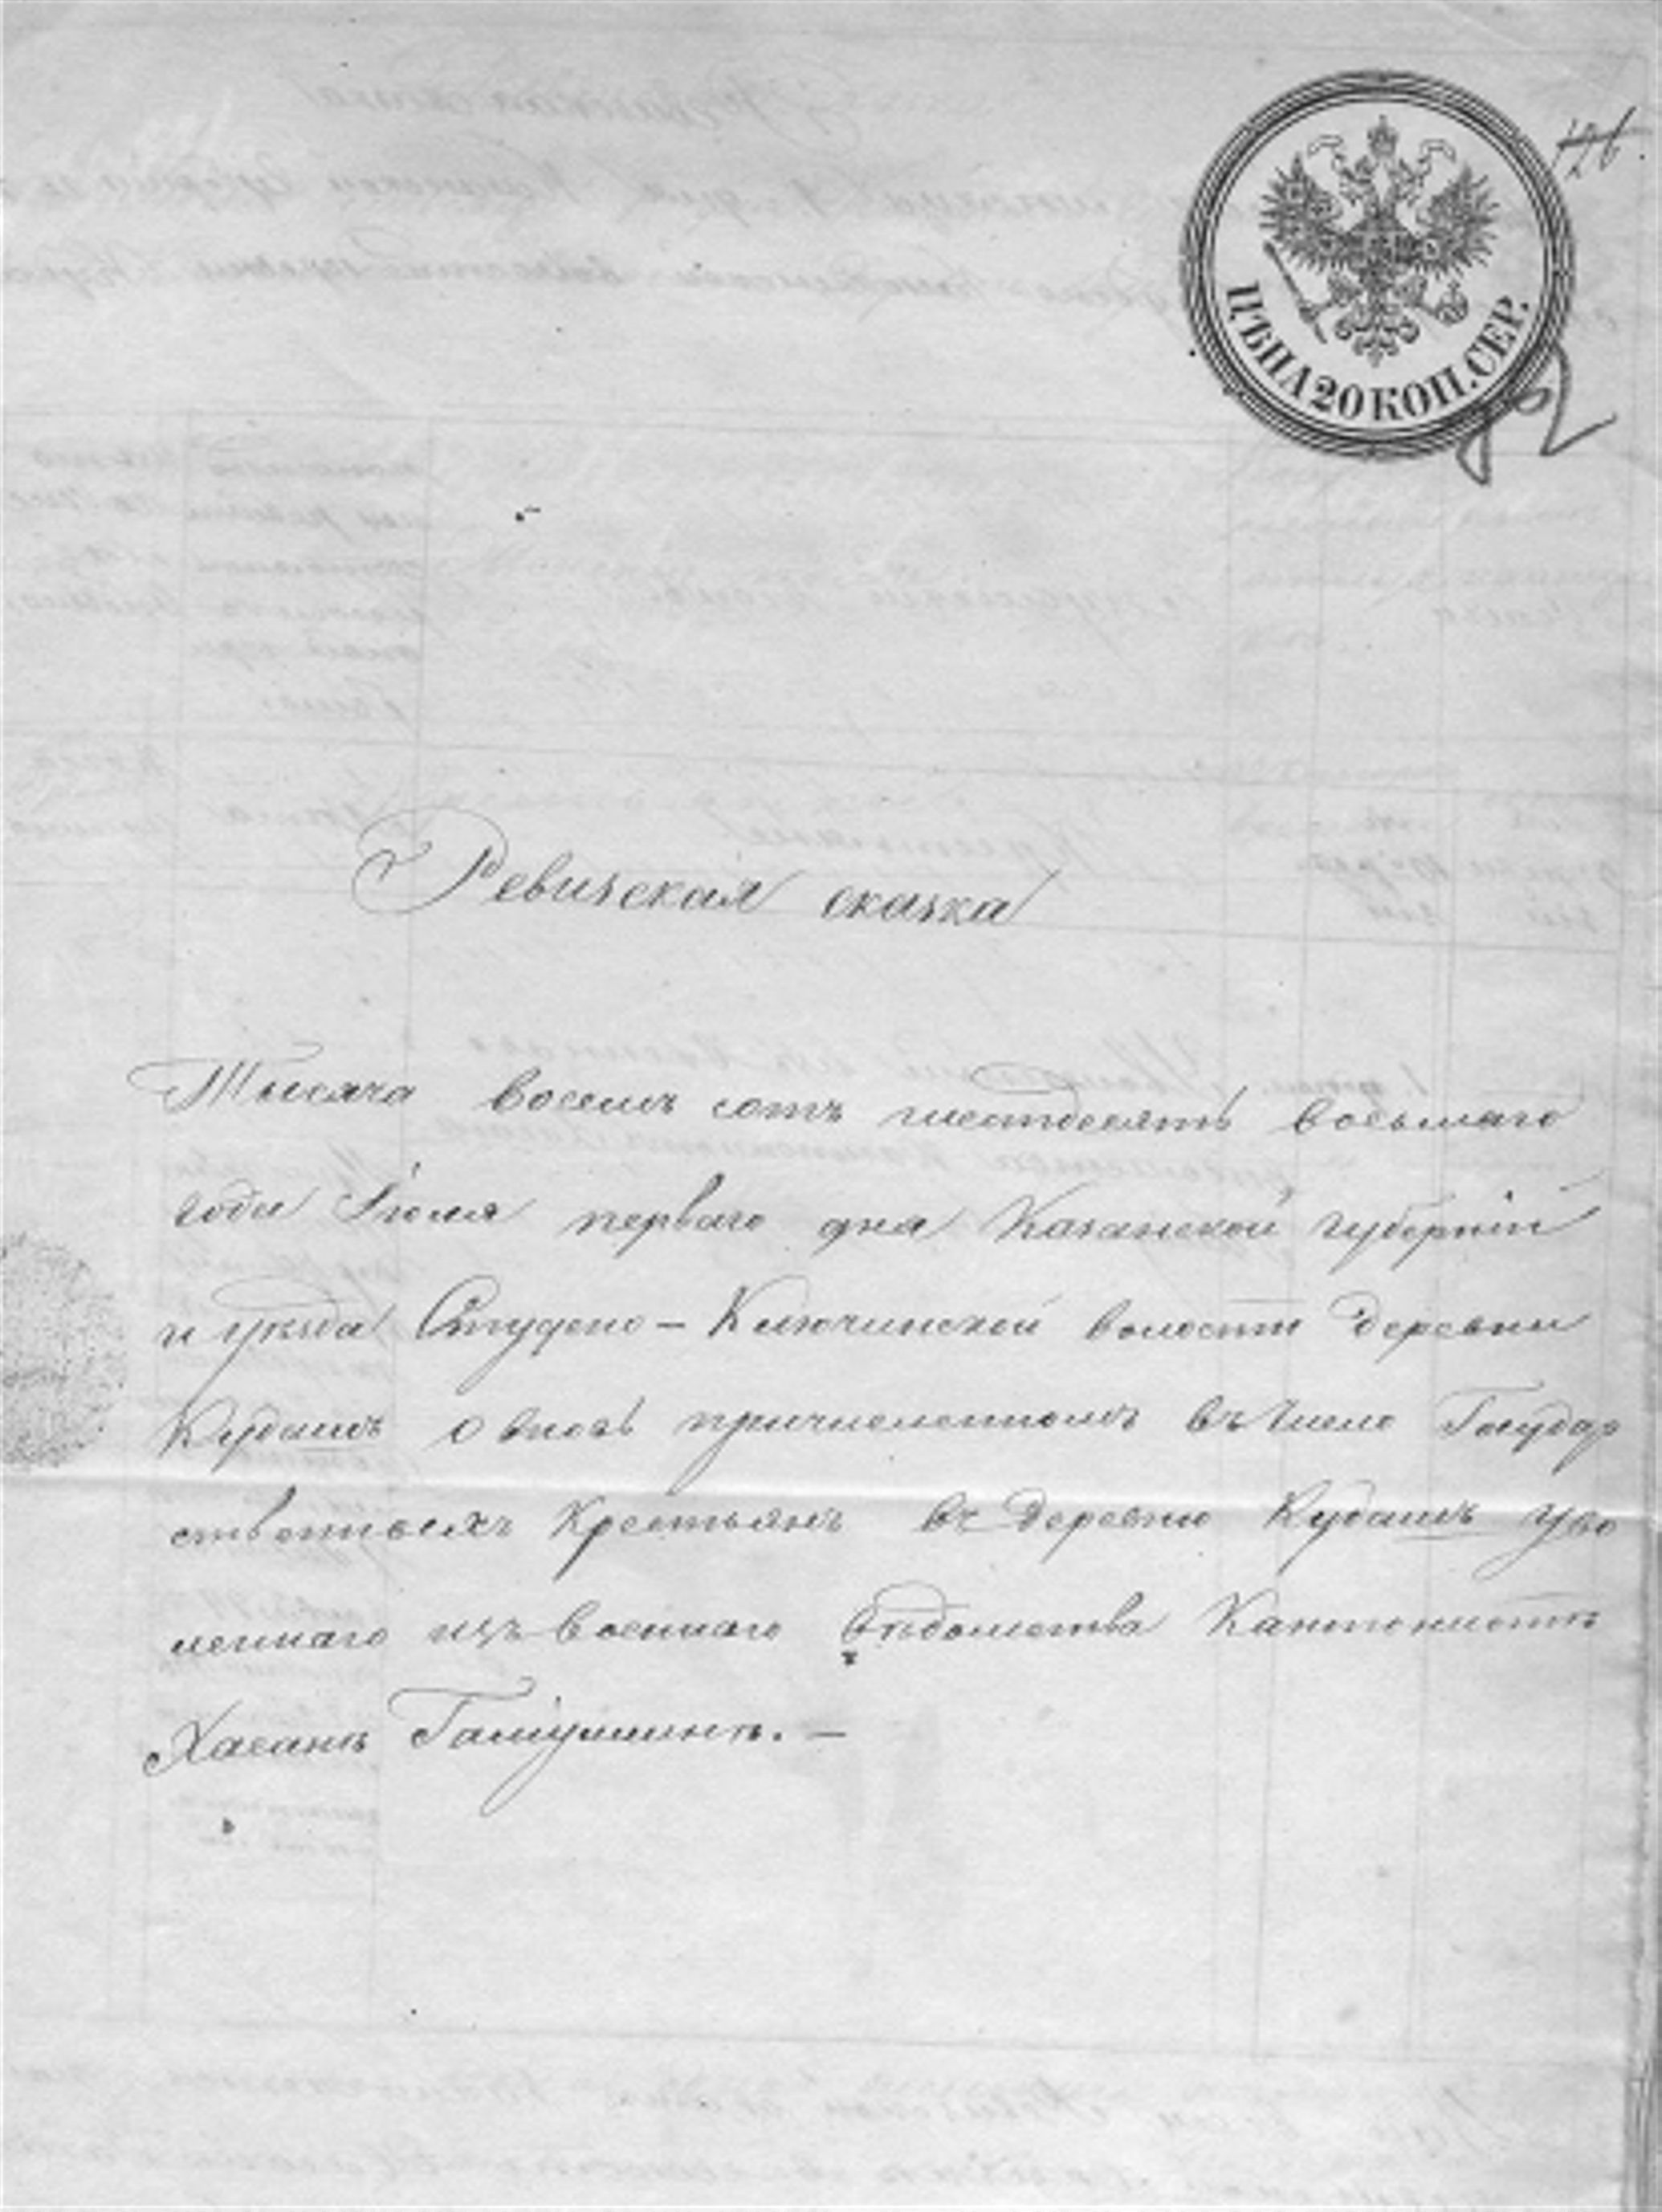 126
ЦѢНА 20 КОП. СЕР.
Ревизская сказка
Тысяча восемь сотъ шестдесятъ восьмаго
года Іюля перваго дня Казанской губерніи
и уѣзда Студено-Ключинской волости деревни
Кудашъ о вновь причисленномъ въ число Государ
ственныхъ Крестьянъ въ деревню Кудашъ уво
леннаго изъ военнаго вѣдомства Кантонистъ
Хасанъ